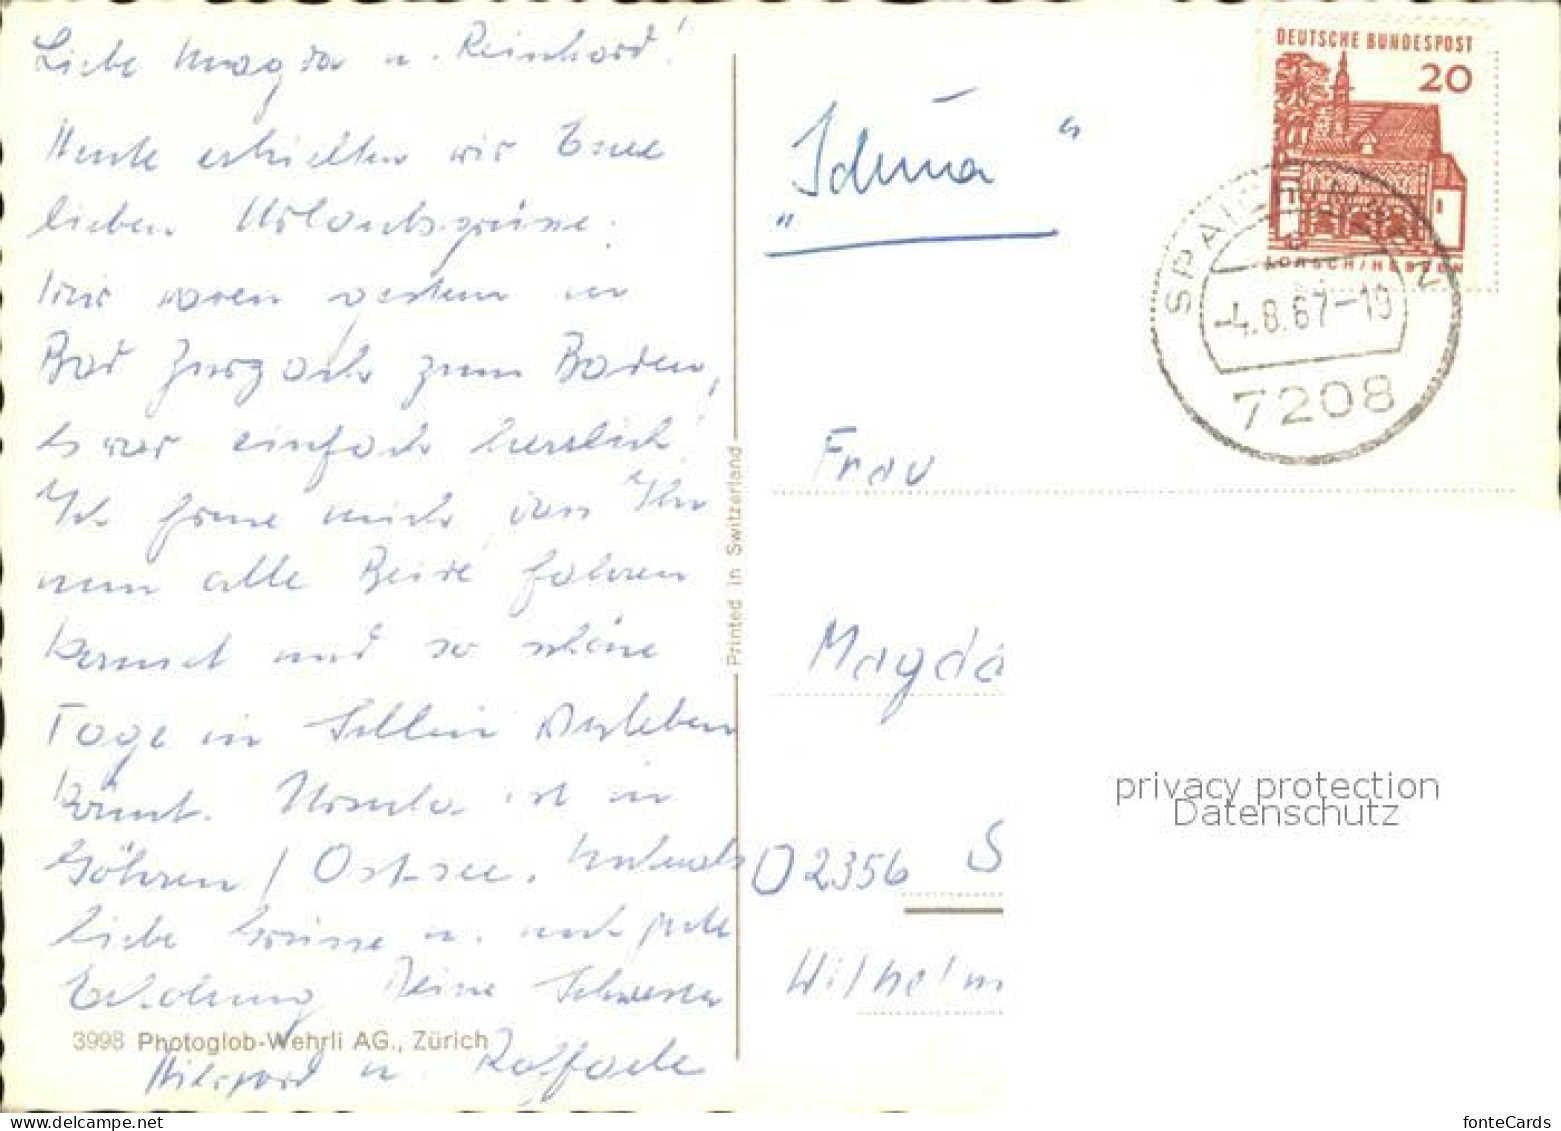 Liebe Magda u. Reinhard!
Heute erhielten wir Eure
lieben Urlaubsgrüsse.
Wir waren gestern in
Bad Zurzach zum Baden,
Es war einfach herrlich!
Ich freue mich, dass Ihr
nun alle Beide fahren
konntet und so schöne
Tage in Sellin verleben
könnt. Ursula ist in
Göhren / Ostsee. Nochmals
liebe Grüsse u. noch gute
Erholung Deine Schwester
u. Raffaele
3998 Photoglob-Wehrli AG., Zürich
Printed in Switzerland
„Iduna“
DEUTSCHE BUNDESPOST
20
LORSCH/HESSEN
SPAICHINGEN
-4.8.67-19
7208
Frau
Magda
O 2356 S
Wilhelm
privacy protection
Datenschutz
fonteCards